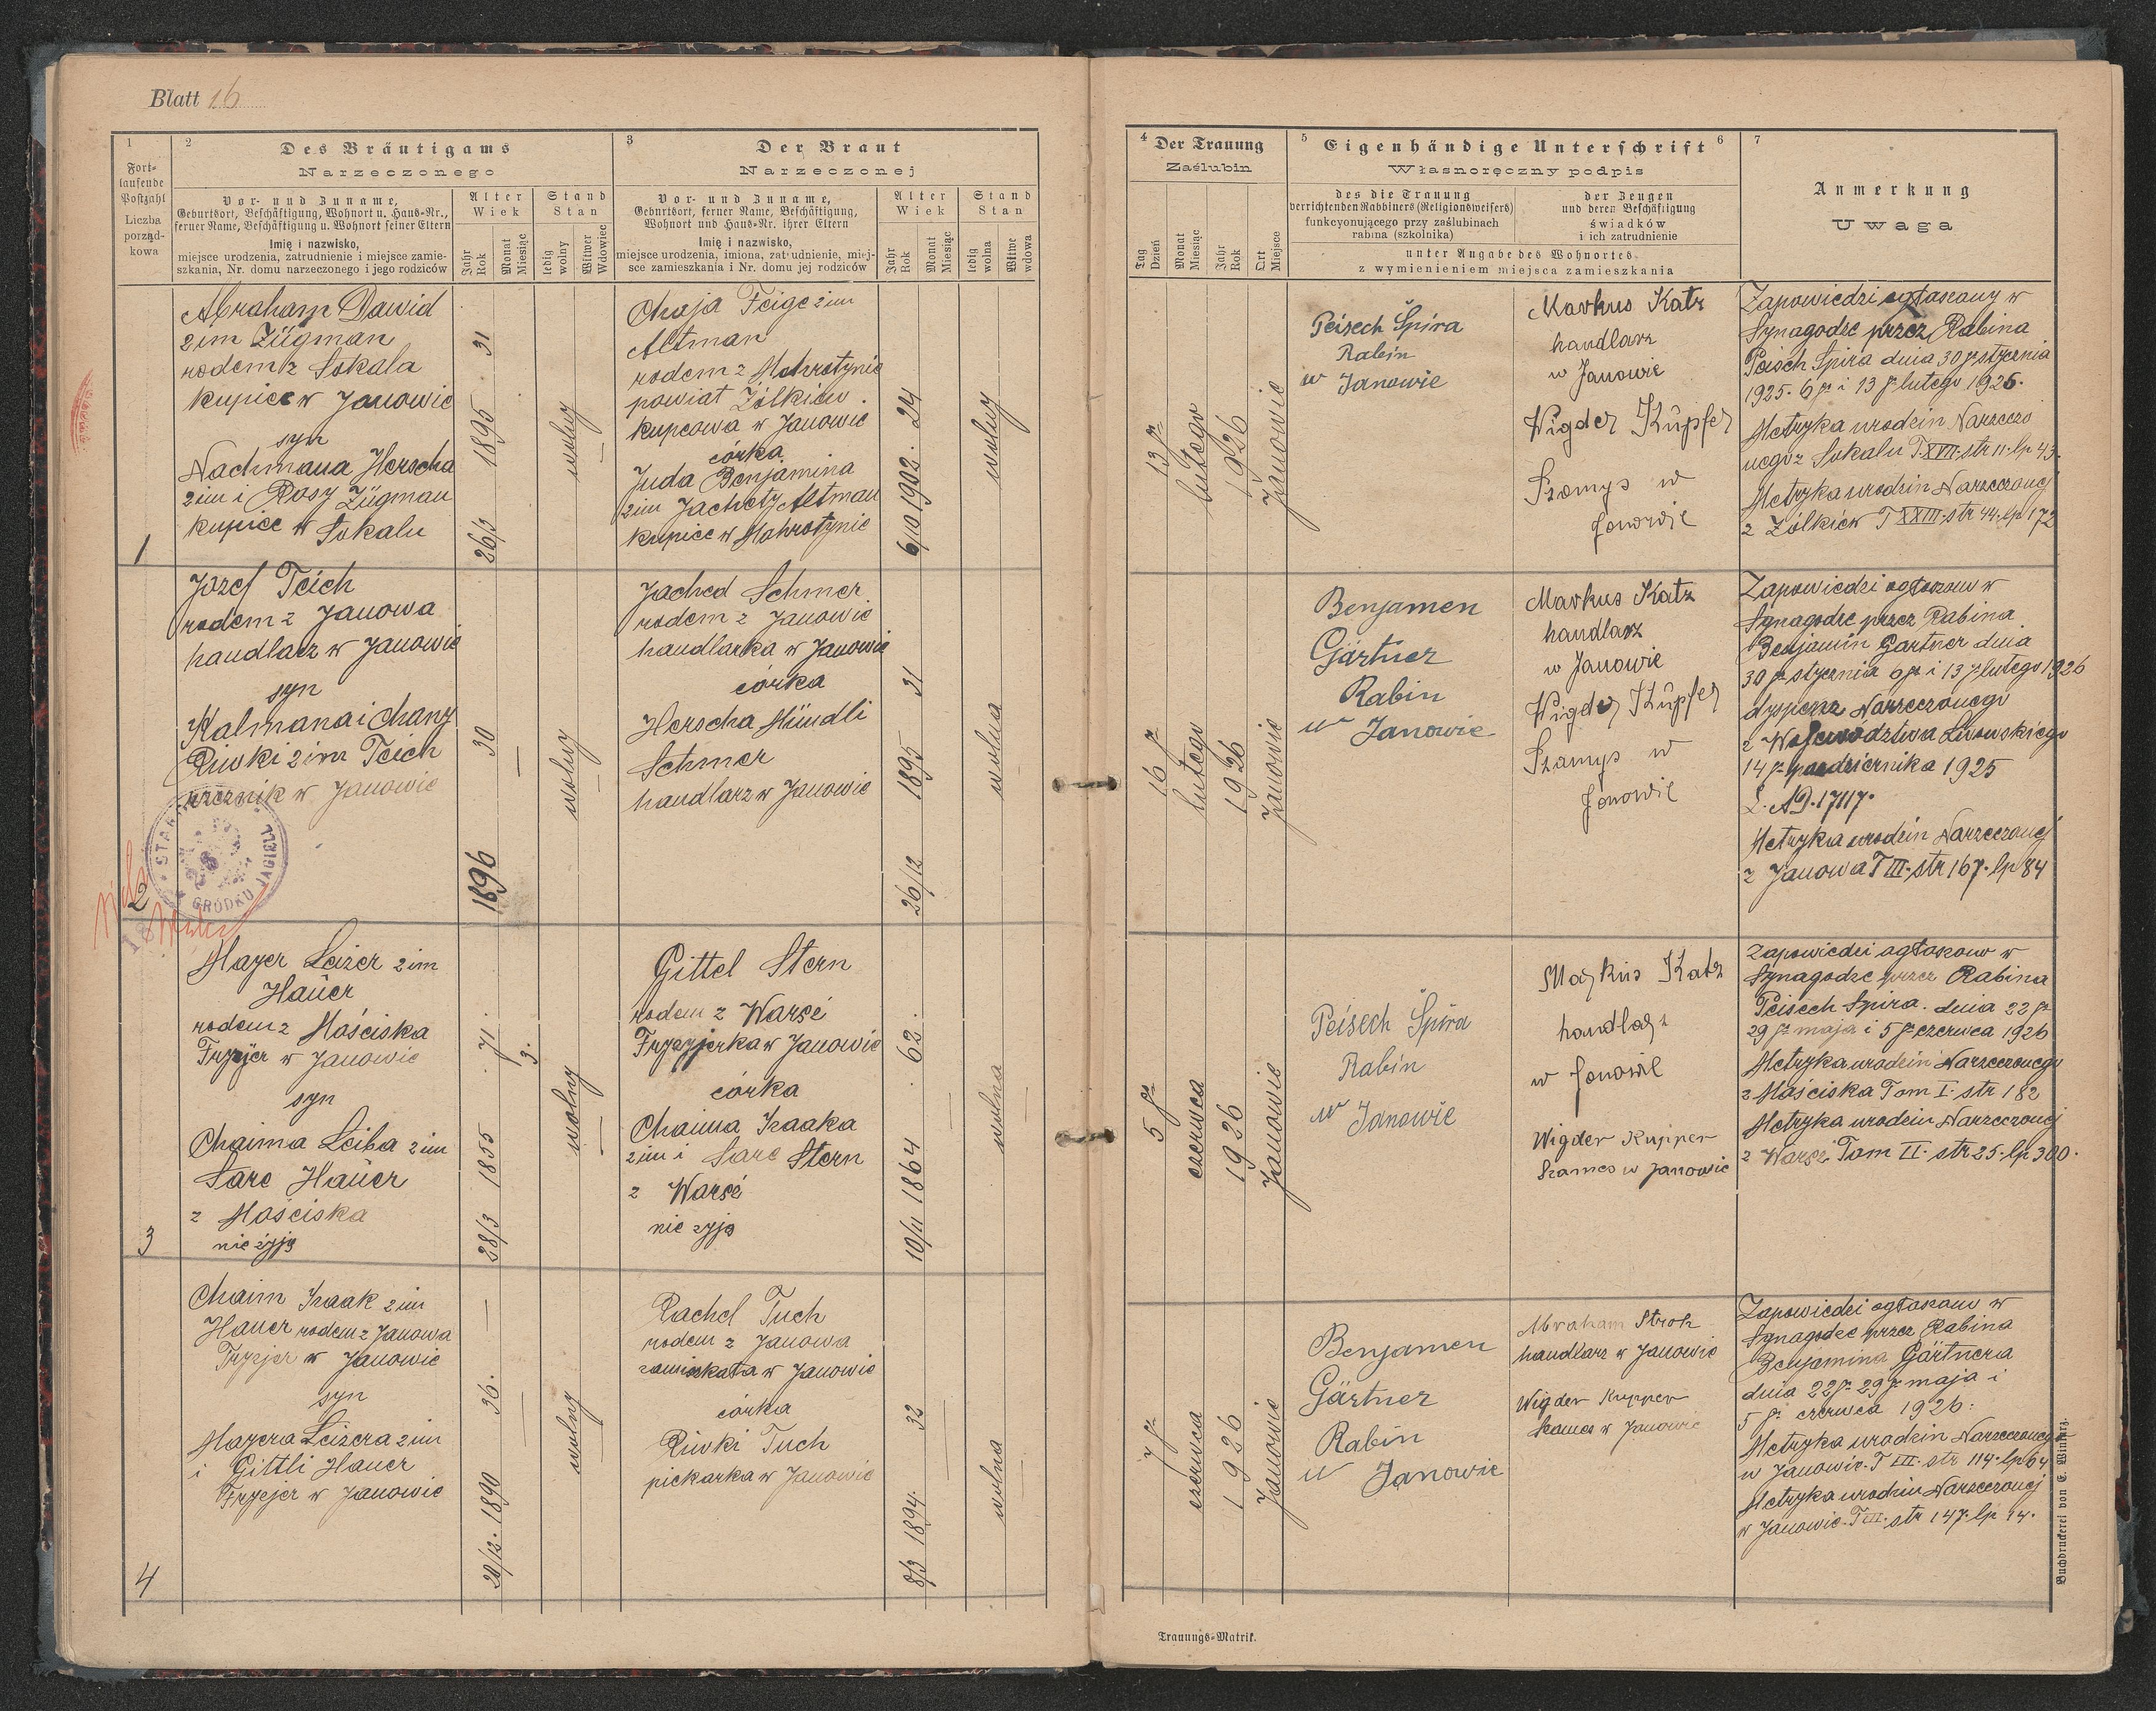 Blatt 16
1
Fort-
laufende
Postzahl
Liczba
porząd-
kowa
2
Des Bräutigams
Narzeczonego
Vor- und Zuname,
Geburtsort, Beschäftigung, Wohnort u. Haus-Nr.,
ferner Name, Beschäftigung u. Wohnort seiner Eltern
Imię i nazwisko,
miejsce urodzenia, zatrudnienie i miejsce zamie-
szkania, Nr. domu narzeczonego i jego rodziców
Alter
Wiek
Jahr
Rok
Monat
Miesiąc
Stand
Stan
ledig
wolny
Witwer
Wdowiec
3
Der Braut
Narzeczonej
Vor- und Zuname,
Geburtsort, ferner Name, Beschäftigung,
Wohnort und Haus-Nr. ihrer Eltern
Imię i nazwisko,
miejsce urodzenia, imiona, zatrudnienie, miej-
sce zamieszkania i Nr. domu jej rodziców
Alter
Wiek
Jahr
Rok
Monat
Miesiąc
Stand
Stan
ledig
wolna
Witwe
wdowa
4
Der Trauung
Zaślubin
Tag
Dzień
Monat
Miesiąc
Jahr
Rok
Ort
Miejsce
5
Eigenhändige Unterschrift
6
Własnoręczny podpis
des die Trauung
verrichtenden Rabbiners (Religionsweisers)
funkcyonującego przy zaślubinach
rabina (szkolnika)
der Zeugen
und deren Beschäftigung
świadków
i ich zatrudnienie
unter Angabe des Wohnortes
z wymienieniem miejsca zamieszkania
7
Anmerkung
Uwaga
1
Abraham Dawid
2im Zügman
rodem z Sokala
kupiec w Janowie
syn
Nachmana Herscha
2im i Rosy Zügman
kupiec w Sokalu
26/3 1895 31
wolny
—
Chaja Feige 2im
Altman
rodem z Mokrotynie
powiat Żółkiew.
kupcowa w Janowie
córka
Juda Benjamina
2im Jachety Altman
kupiec w Mokrotynie
6/10 1902. 24
wolny
13go
lutego
1926
Janowie
Peisech Spira
Rabin
w Janowie
Markus Katz
handlarz
w Janowie
Wigder Küpfer
Szamys w
Janowie
Zapowiedzi ogłaszany w
Synagodze przez Rabina
Peisch Spira dnia 30go stycznia
1925. 6go i 13go lutego 1926.
Metryka urodzin Narzeczo
nego z Sokalu T. XVII. str 11. lp 43.
Metryka urodzin Narzeczonej
z Żółkiew T XXIII. str 44. lp 172
2
Jozef Teich
rodem z Janowa
handlarz w Janowie
syn
Kalmana i Chany
Riwki 2im Teich
rzeznik w Janowie
1896
30
—
wolny
—
Jached Schmer
rodem z Janowie
handlarka w Janowie
córka
Herscha Mündli
Schmer
handlarz w Janowie
26/12 1895 31
wolna
16go
lutego
1926
Janowie
Benjamen
Gärtner
Rabin
w Janowie
Markus Katz
handlarz
w Janowie
Wigder Küpfer
Szamys w
Janowie
Zapowiedzi ogłoszono w
Synagodze przez Rabina
Benjamin Gartner dnia
30go stycznia 6go i 13go lutego 1926
dyspenza Narzeczonego
z Województwa Lwowskiego
14go pazdziernika 1925
L. AD. 17117.
Metryka urodzin Narzeczonej
z Janowa T III. str 167. lp 84
GRÓDKU JAGIELL.
3
Mayer Leizer 2im
Haüer
rodem z Mościska
Fryzjer w Janowie
syn
Chaima Leiba 2im
Sare Haüer
z Mościska
nie żyją
28/3 1855 71.
3.
wolny
—
Gittel Stern
rodem z Warsé
Fryzyjerka w Janowie
córka
Chaima Izaaka
2im i Sare Stern
z Warsé
nie zyją
10/11 1864 62.
wolna
—
5go
czerwca
1926
Janowie
Peisech Spira
Rabin
w Janowie
Markus Katz
handlarz
w Janowie
Wigder Kupper
Szames w Janowie
Zapowiedzi ogłaszono w
Synagodze przez Rabina
Peisech Spira. dnia 22go
29go maja i 5go czerwca 1926
Metryka urodzin Narzeczonego
z Mościska Tom I. str 182
Metryka urodzin Narzeczonej
z Warsé Tom II. str 25. lp 300.
4
Chaim Izaak 2im
Hauer rodem z Janowa
Fryzjer w Janowie
syn
Mayera Leizera 2im
i Gittli Hauer
Fryzjer w Janowie
20/12. 1890 36.
—
wolny
—
Rachel Tuch
rodem z Janowa
zamieszkała w Janowie
córka
Riwki Tuch
piekarka w Janowie
8/3 1894. 32
—
wolna
—
7go
czerwca
1926
Janowie
Benjamen
Gärtner
Rabin
w Janowie
Abraham Stroh
handlarz w Janowie
Wigder Kupper
Szames w Janowie
Zapowiedzi ogłaszano w
Synagodze przez Rabina
Benjamina Gärtnera
dnia 22go 29go maja i
5go czerwca 1926.
Metryka urodzin Narzeczonego
w Janowie. T III. str 114. lp 64
Metryka urodzin Narzeczonej
w Janowie. T III. str 147. lp 14.
Trauungs-Matrik.
Buchdruckerei von E. Winiarz.